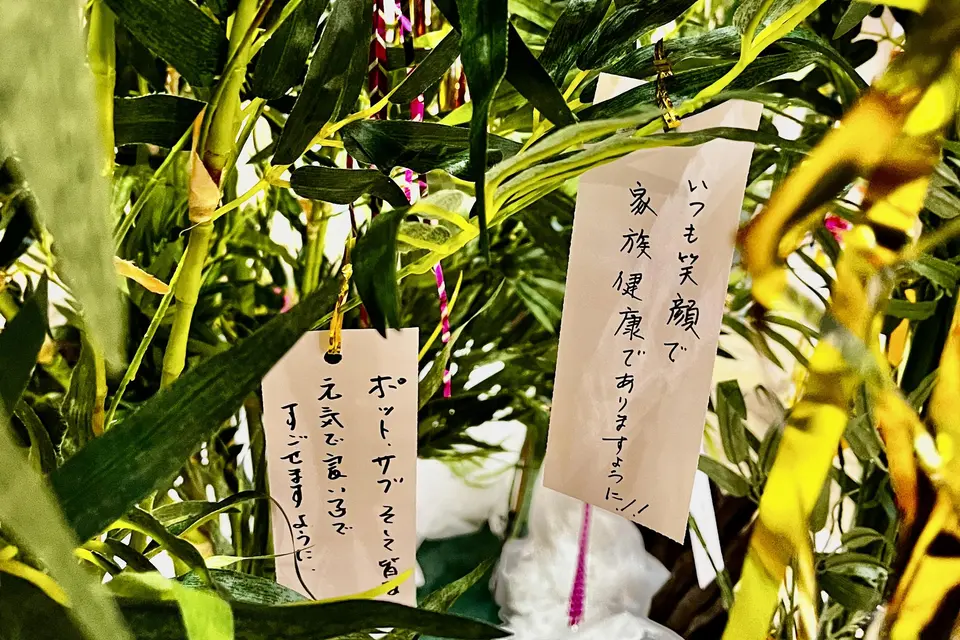 いつも笑顔で
家族健康でありますように!!
ポット、サブ そして皆
元気で
すごせますように